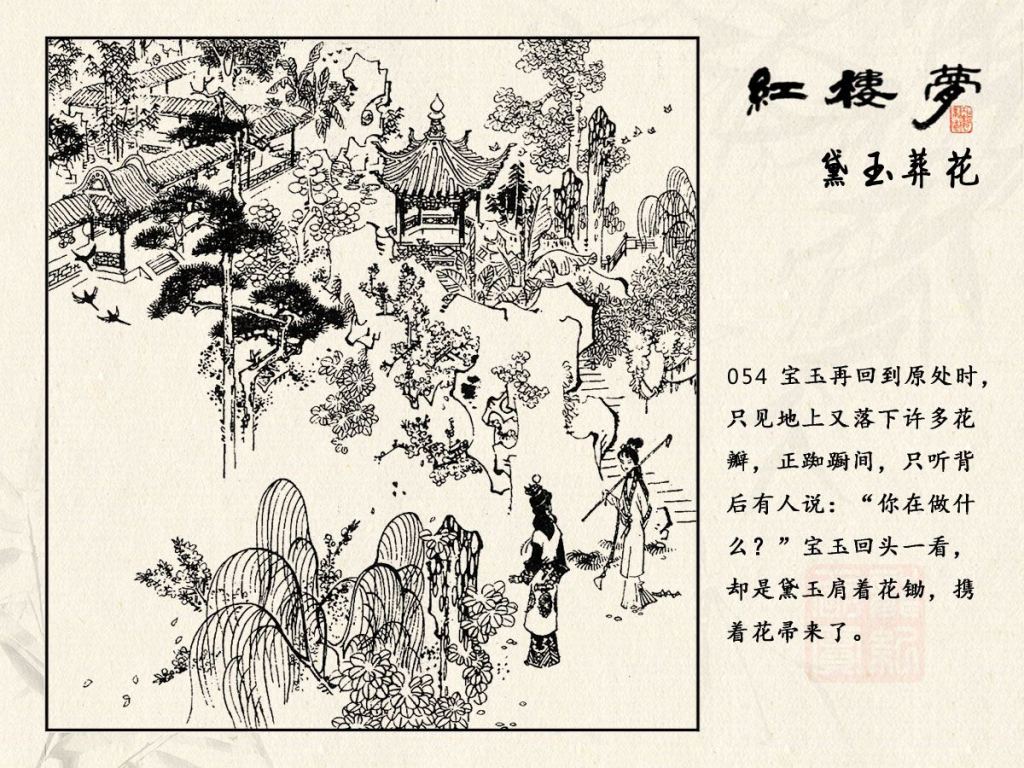 紅樓夢
黛玉葬花
054 宝玉再回到原处时，
只见地上又落下许多花
瓣，正踟蹰间，只听背
后有人说：“你在做什
么？”宝玉回头一看，
却是黛玉肩着花锄，携
着花帚来了。